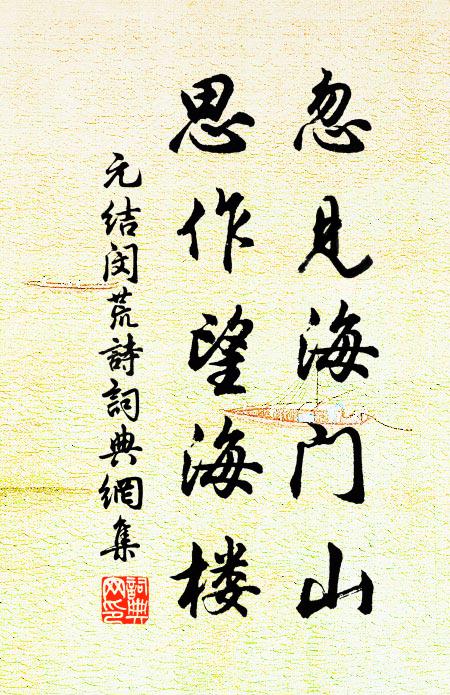 忽见海门山
思作望海楼
元结闵荒詩詞典網集
詞典網印